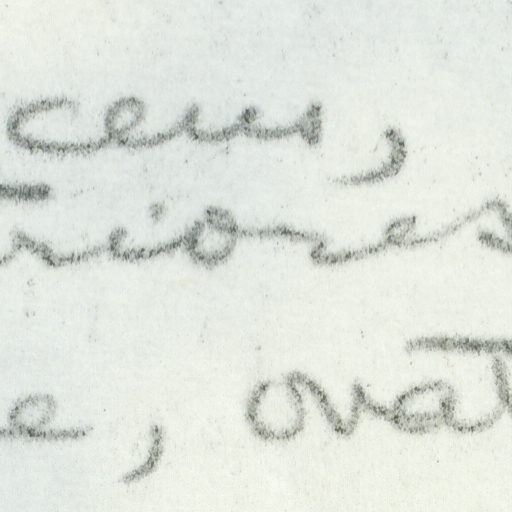 ceus,
riores
e, ovat